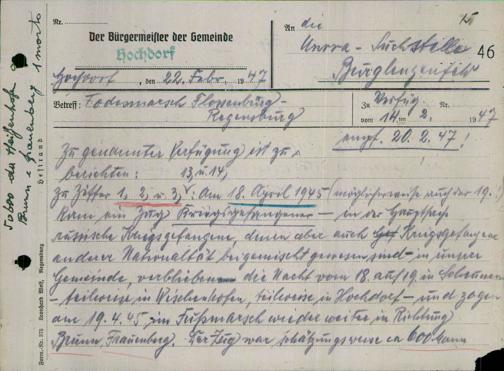 Nr.
Der Bürgermeister der Gemeinde
Hochdorf
Hochdorf, den 22. Febr. 1947
An die
Unrra-Suchstelle
Burglengenfeld
46
Betreff: Todesmarsch Flossenbürg-
Regensburg
Zu Verfüg.
vom 14. 2. Nr. 1947
empf. 20.2.47!
Zu genannter Verfügung ist zu
berichten: 13, u. 14,
Zu Ziffer 1, 2, u. 3, Am 18. April 1945 (möglicherweise auch der 19.)
kam ein Zug Kriegsgefangener – in der Hauptsache
russische Kriegsgefangene, denen aber auch Kriegsgefangene
anderer Nationalität beigemischt gewesen sind – in unsere
Gemeinde, verblieben die Nacht vom 18. auf 19. in Scheunen –
teilweise in Wischenhofen, teilweise in Hochdorf – und zogen
am 19.4.45 im Fußmarsch wieder weiter in Richtung
Brunn, Frauenberg. Der Zug war schätzungsweise ca 600 Mann
Heftrand
Brunn e Frauenberg 1 morto